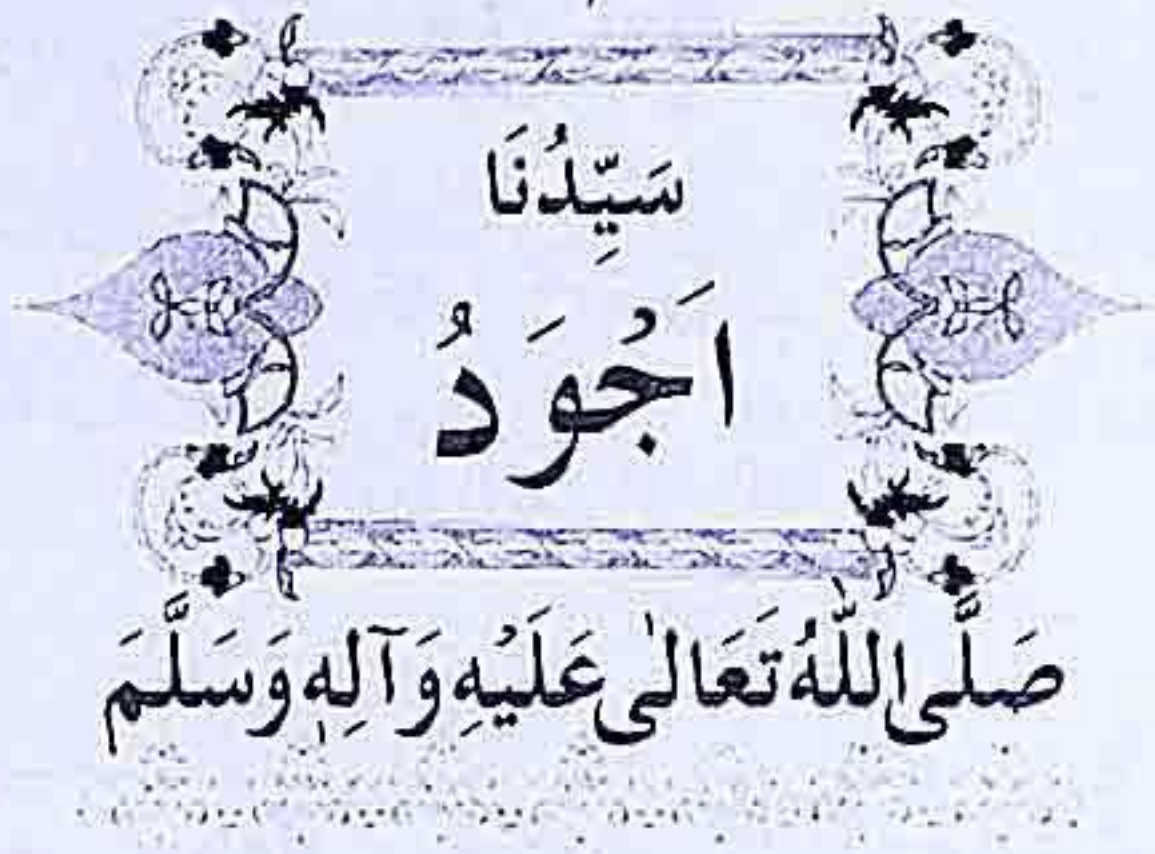 سَيِّدُنَا
اَجْوَدُ
صَلَّى اللّٰهُ تَعَالٰى عَلَيْهِ وَآلِهٖ وَسَلَّمَ